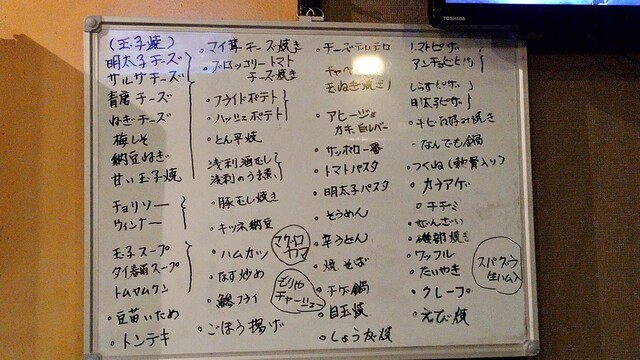 (玉子焼)
明太子チーズ
サルサチーズ
青唐チーズ
ねぎチーズ
梅しそ
納豆ねぎ
甘い玉子焼
チョリソー
ウィンナー
玉子スープ
タイ春雨スープ
トムヤムクン
・豆苗いため
・トンテキ
・マイ茸チーズ焼き
・ブロッコリートマト
チーズ焼き
・フライドポテト
・ハッシュポテト
・とん平焼
・浅利酒むし
浅利のうま煮
・豚むし焼き
・キッネ納豆
・ハムカツ
・なす炒め
・鯵フライ
・ごぼう揚げ
マグロ
カマ
もりや
チャーシュー
・アヒージョ
カキ、白レバー
・サッポロ一番
・トマトパスタ
・明太子パスタ
・そうめん
・辛うどん
・焼そば
・チゲ鍋
・目玉焼
・しょうが焼
トマトピザ
アンチョビピザ
しらすピザ
明太子ピザ
・チビお好み焼き
・なんでも鍋
・つくね(軟骨入り)
・カラアゲ
・チヂミ
・ぜんざい
・磯部焼き
・ワッフル
・たいやき
・クレープ
・えび焼
スパタウ
生ハム入
TOSHIBA